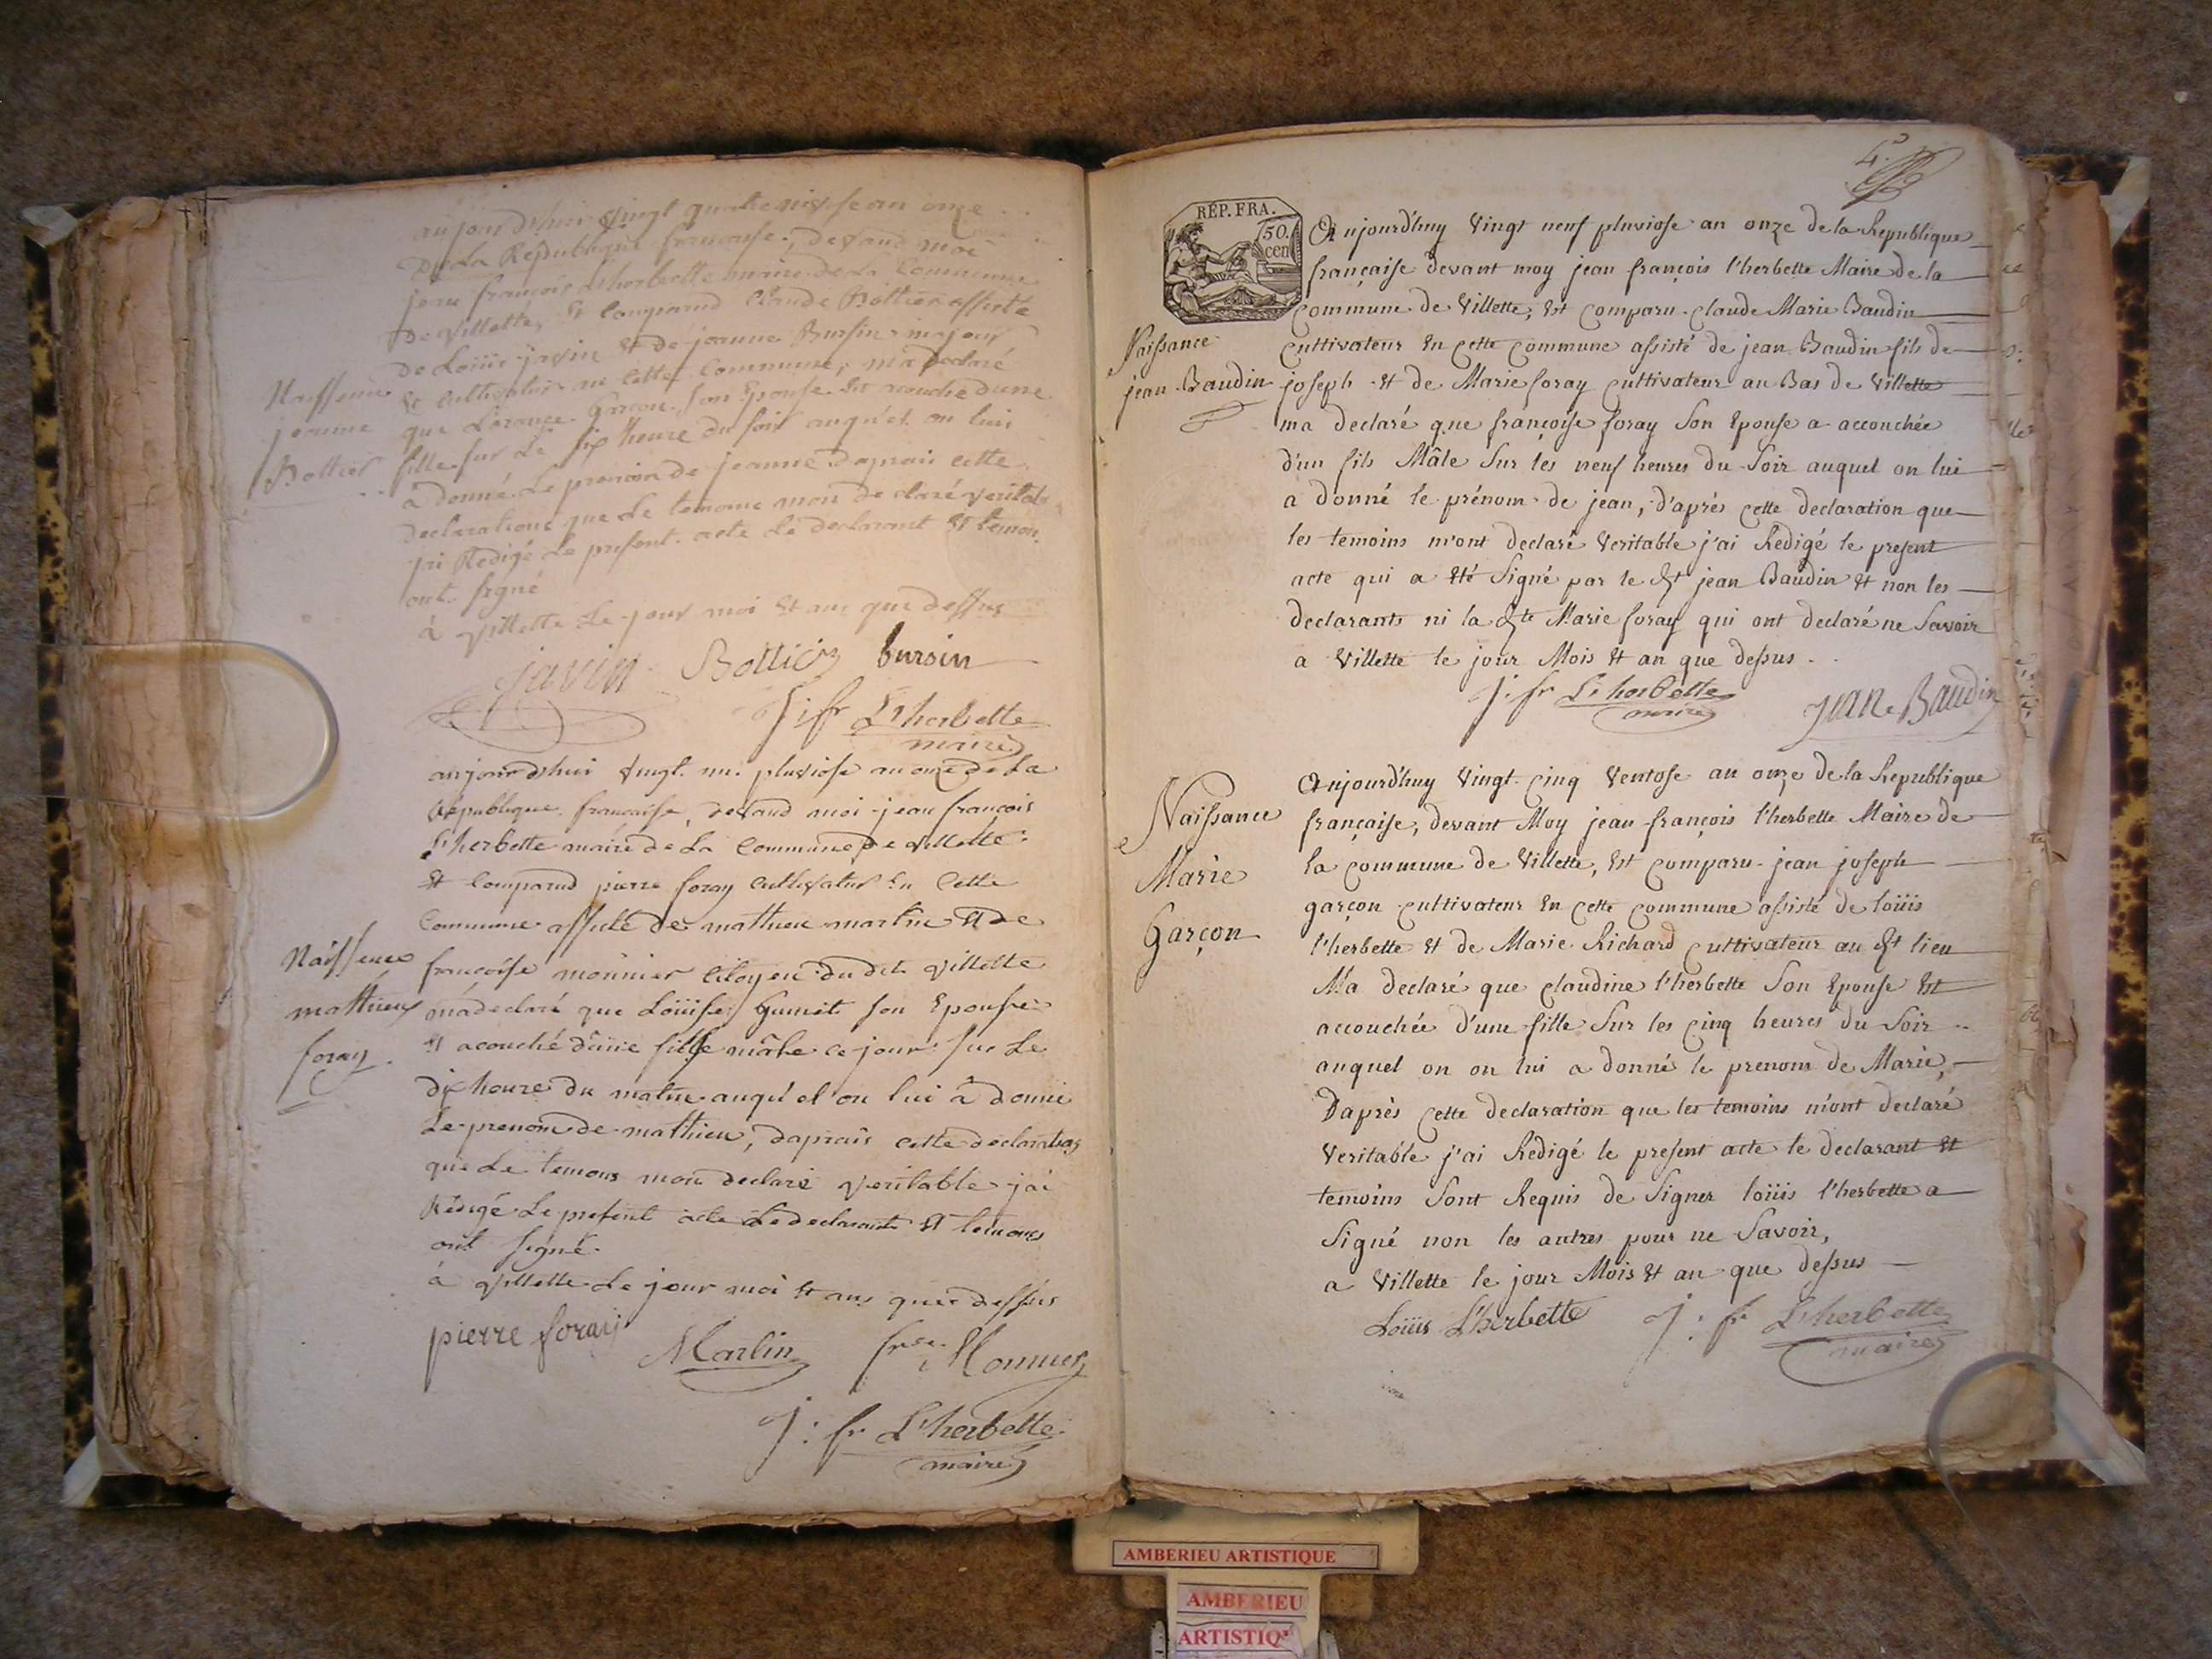 aujourd'hui vingt quatre nivose an onze
De La République francaise, devand moi
jean francois L'herbette maire de La Commune
De villette, Et Comparud Claude Bottier assisté
De Loüis javin Et de jeanne Bursin majeur
Naissence
Et cultivateur en cette Commune, m'a declaré
jeanne
que Garcon son Epouse Est acouché d'une
Bottier
fille sur Le six heure du soir auquel on lui
à donné Le prenom de jeanne daprais cette
declarations que Le temoins mon declaré veritable
j'ai Redigé Le present acte Le declarant Et temoin
ont signé
à villette Le jour moi Et an que dessus
javin Bottier bursin
J: fr L'herbette
maire
aujourd'hui vingt un pluviose an onze de La
Republique francaise, devand moi jean francois
L'herbette maire de La Commune de villette
Et Comparud pierre foray cultivateur En Cette
Commune assisté de mathieu martin Et de
Naissence
francoise monnier citoyen dudit villette
mathieu
m'a declaré que Loüise Gunet son Epouse
foray
Et acouché d'unie fille mâle ce jour sur Le
dix heure du matin auquel on lui à donné
Le prenom de mathieu, daprais cette declaration
que Le temons mon declaré veritable j'ai
Rédigé Le present acte Le declarant Et temons
ont signé
à villette Le jour moi Et ans que dessus
pierre foray Martin frse Monnier
J: fr L'herbette
maire
4.
RÉP. FRA.
50.
cen
Aujourd'huy vingt neuf pluviose an onze de la Republique
française devant moy jean françois l'herbette Maire de la
commune de Villette, Est comparu claude Marie Baudin
Naissance
cultivateur En cette commune assisté de jean Baudin fils de
jean Baudin
joseph Et de Marie foray cultivateur au Bas de Villette
ma declaré que françoise foray Son Epouse a accouchée
d'un fils Mâle Sur les neuf heures du Soir auquel on lui
a donné le prénom de jean, d'après cette declaration que
les temoins m'ont declaré Veritable j'ai Redigé le present
acte qui a Eté Signé par le dt jean Baudin Et non les
declarants ni la dte Marie foray qui ont declaré ne Savoir
a Villette le jour Mois Et an que dessus
J: fr L'herbette
maire
jean Baudin
Aujourd'huy Vingt cinq Ventose an onze de la Republique
Naissance
française, devant Moy jean françois l'herbette Maire de
la commune de Villette, Est comparu jean joseph
Marie
garçon cultivateur En cette commune assisté de loüis
Garçon
l'herbette Et de Marie Richard cultivateur au dt lieu
M'a declaré que claudine l'herbette Son Epouse Est
accouchée d'une fille Sur les cinq heures du Soir
auquel on on lui a donné le prenom de Marie,
D'après cette declaration que les temoins m'ont declaré
Veritable j'ai Redigé le present acte le declarant Et
temoins Sont Requis de Signer loüis l'herbette a
Signé non les autres pour ne Savoir,
a Villette le jour Mois Et an que dessus
Loüis L'herbette J: fr L'herbette
maire
AMBERIEU ARTISTIQUE
AMBERIEU
ARTISTIQ